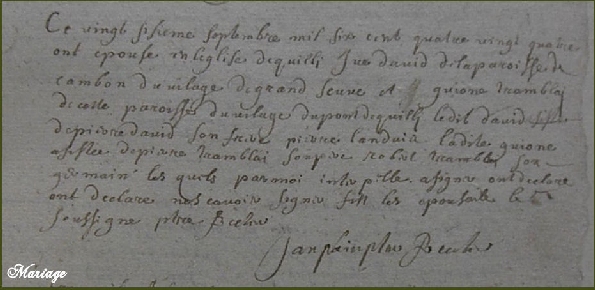 Ce vingt sisieme septembre mil six cent quatre vingt quatre
ont epousé en leglise de quilli Jue david de la paroisse de
cambon du vilage de grand seuve et guione tramblai
de cette paroisse du vilage du pont de quilli ledit david
de pierre david son frere pierre landuie ladite guione
asistee de pierre tramblai son pere tramblai son
germain les quels par moi inter pelle a signer ont declare
ont declare ne scavoir signer fist les epousaille le
soussigne ptre Recteur
Jan ptre Recteur
Mariage